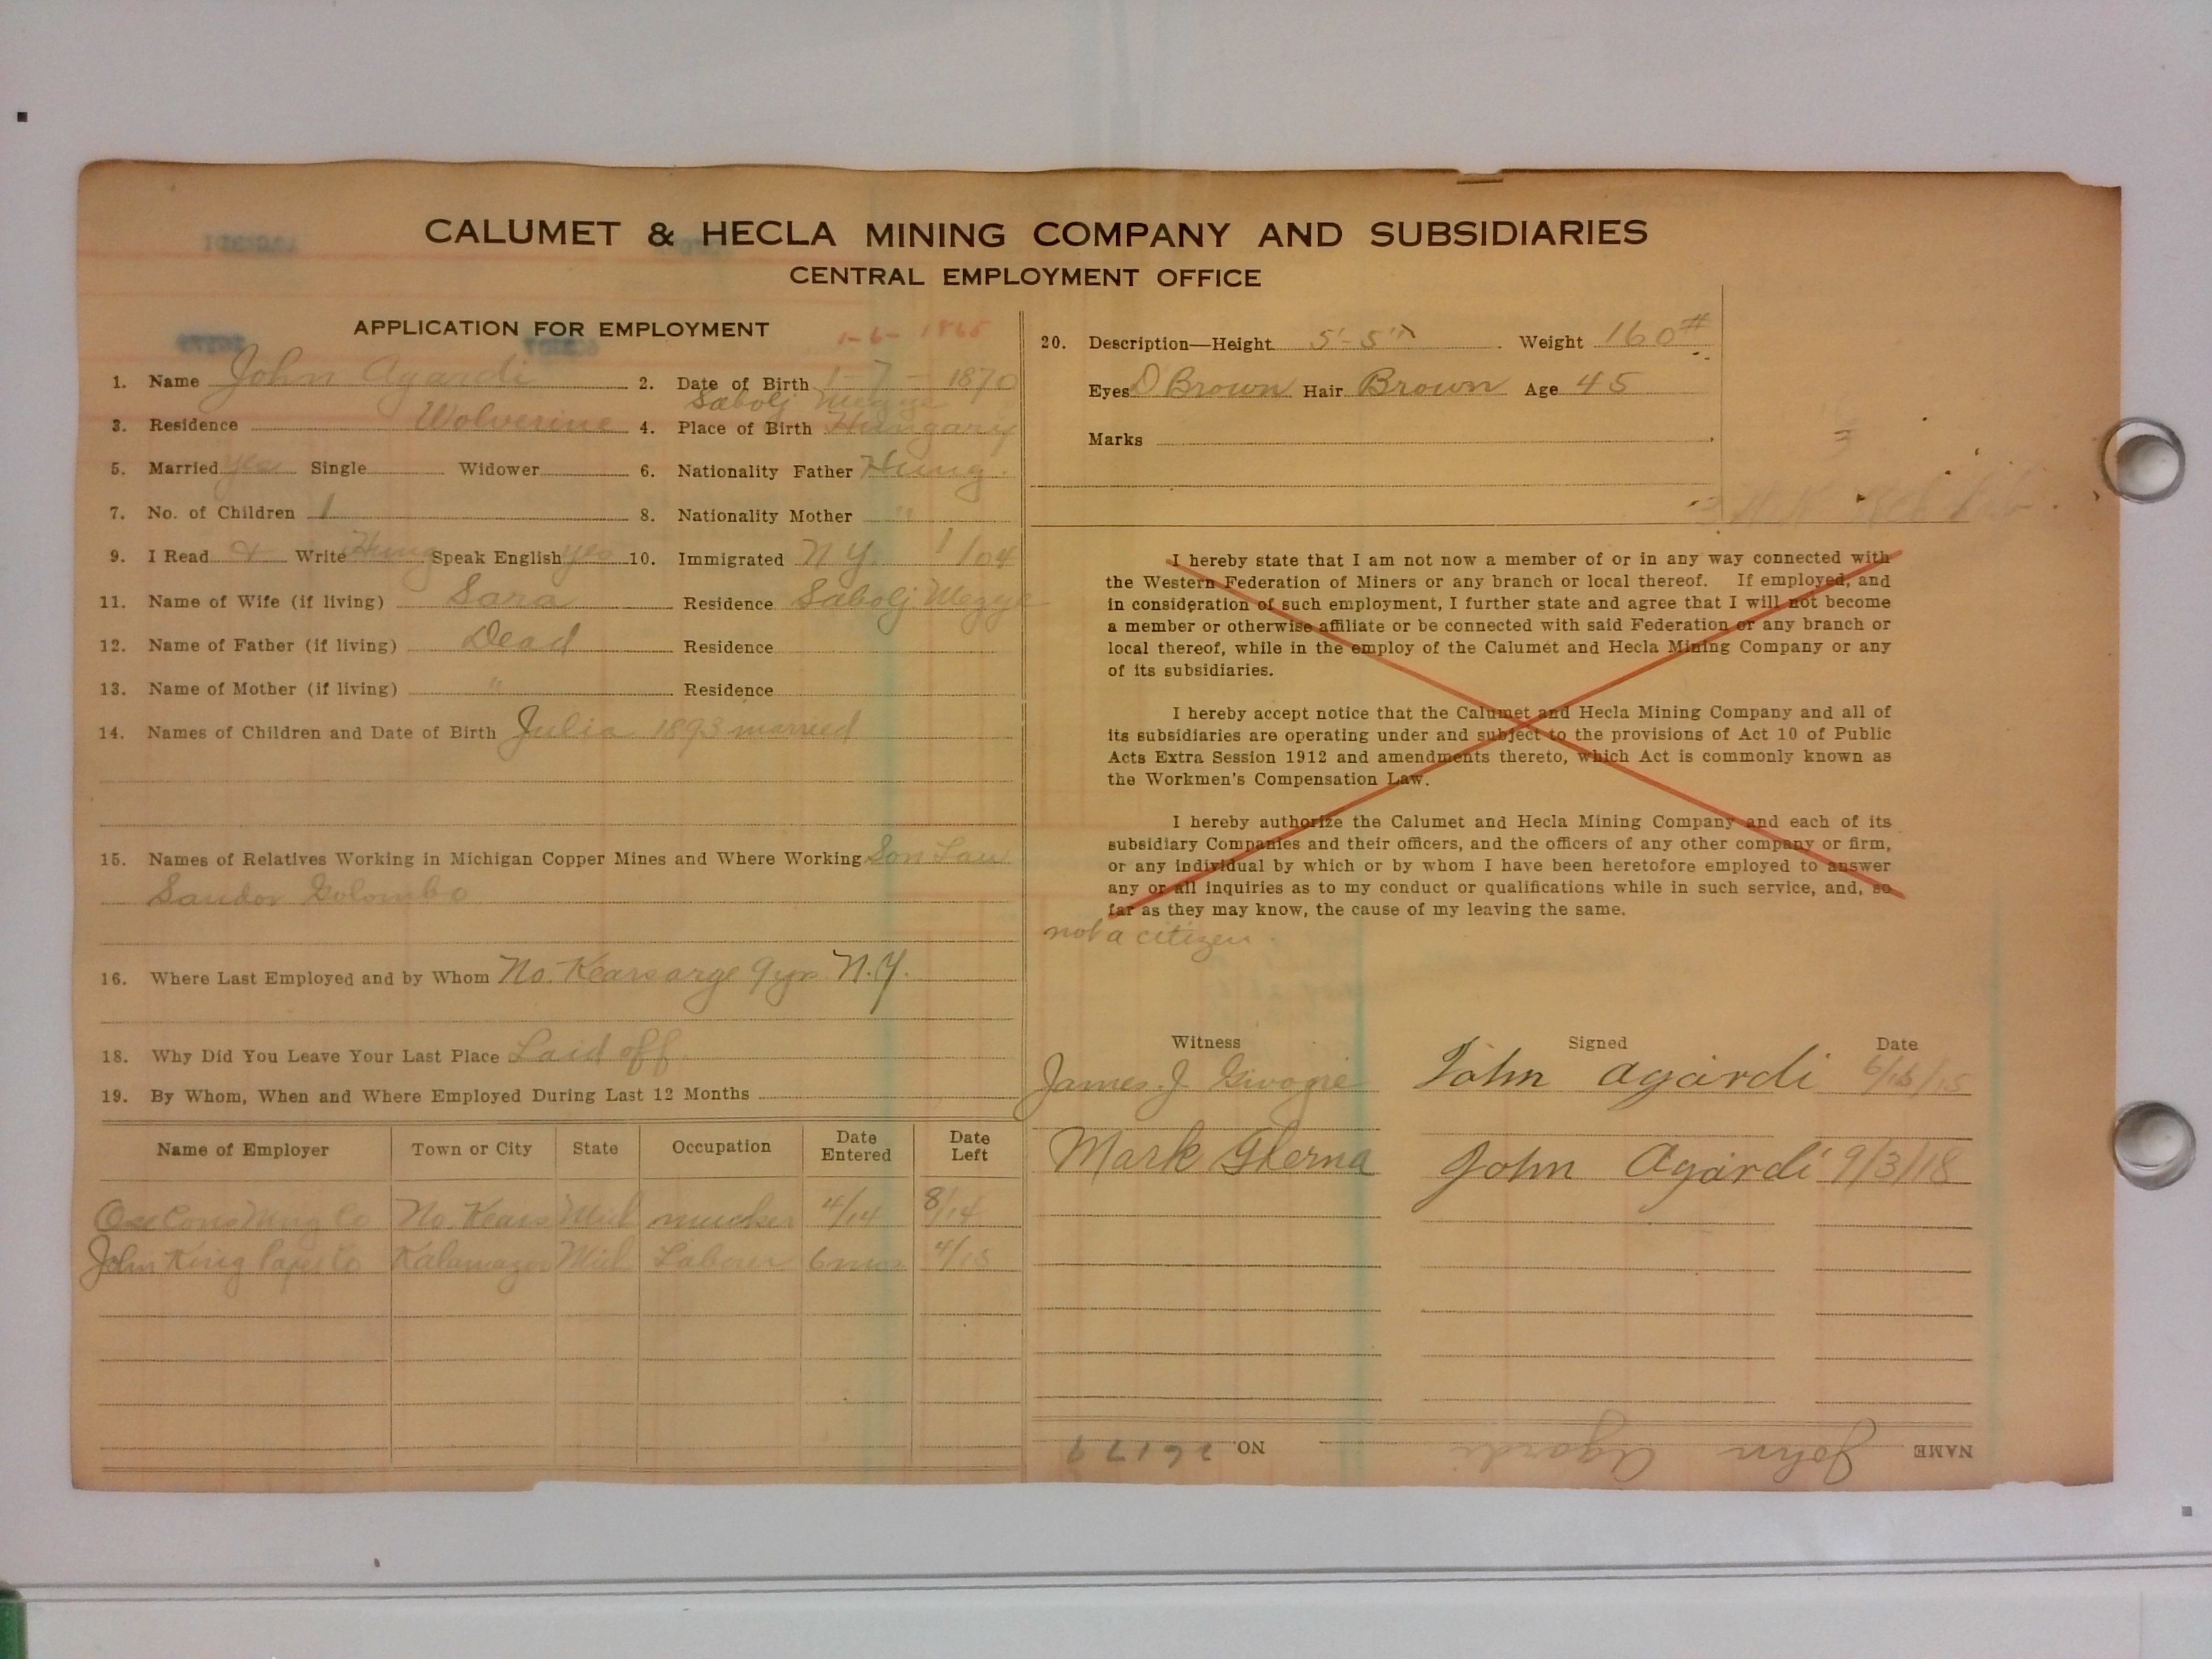 CALUMET & HECLA MINING COMPANY AND SUBSIDIARIES
CENTRAL EMPLOYMENT OFFICE
APPLICATION FOR EMPLOYMENT
1-6-1865
1. Name John Agardi 2. Date of Birth 1-7-1870
Sabolj Megye
3. Residence Wolverine 4. Place of Birth Hungary
5. Married yes Single Widower 6. Nationality Father Hung.
7. No. of Children 1 8. Nationality Mother "
9. I Read & Write Hung Speak English yes 10. Immigrated N.Y. 1/04
11. Name of Wife (if living) Sara Residence Sabolj Megye
12. Name of Father (if living) Dead Residence
13. Name of Mother (if living) " Residence
14. Names of Children and Date of Birth Julia 1893 married
15. Names of Relatives Working in Michigan Copper Mines and Where Working Son Law
Sandor Golombo
16. Where Last Employed and by Whom No. Kearsarge 9 yrs N.Y.
18. Why Did You Leave Your Last Place Laid off
19. By Whom, When and Where Employed During Last 12 Months
Name of Employer Town or City State Occupation Date Entered Date Left
Osc Cons Mng Co No. Kears Mich mucker 4/14 8/14
John King Paper Co Kalamazoo Mich Laborer 6 mos 4/15
20. Description—Height 5'-5" Weight 160#
Eyes D Brown Hair Brown Age 45
Marks
3
I hereby state that I am not now a member of or in any way connected with
the Western Federation of Miners or any branch or local thereof. If employed, and
in consideration of such employment, I further state and agree that I will not become
a member or otherwise affiliate or be connected with said Federation or any branch or
local thereof, while in the employ of the Calumet and Hecla Mining Company or any
of its subsidiaries.
I hereby accept notice that the Calumet and Hecla Mining Company and all of
its subsidiaries are operating under and subject to the provisions of Act 10 of Public
Acts Extra Session 1912 and amendments thereto, which Act is commonly known as
the Workmen's Compensation Law.
I hereby authorize the Calumet and Hecla Mining Company and each of its
subsidiary Companies and their officers, and the officers of any other company or firm,
or any individual by which or by whom I have been heretofore employed to answer
any or all inquiries as to my conduct or qualifications while in such service, and, so
far as they may know, the cause of my leaving the same.
not a citizen
Witness Signed Date
James J. John Agardi 6/16/15
Mark John Agardi 9/3/18
NAME John Agardi NO 26179